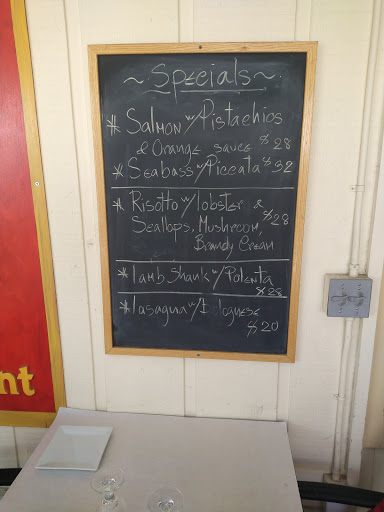 ~ Specials ~
* Salmon w/Pistachios
& Orange sauce $28
* Seabass w/Piccata $32
* Risotto w/lobster &
Scallops, Mushroom, $28
Brandy Cream
* lamb Shank w/Polenta
$28
* lasagna w/
$20
nt